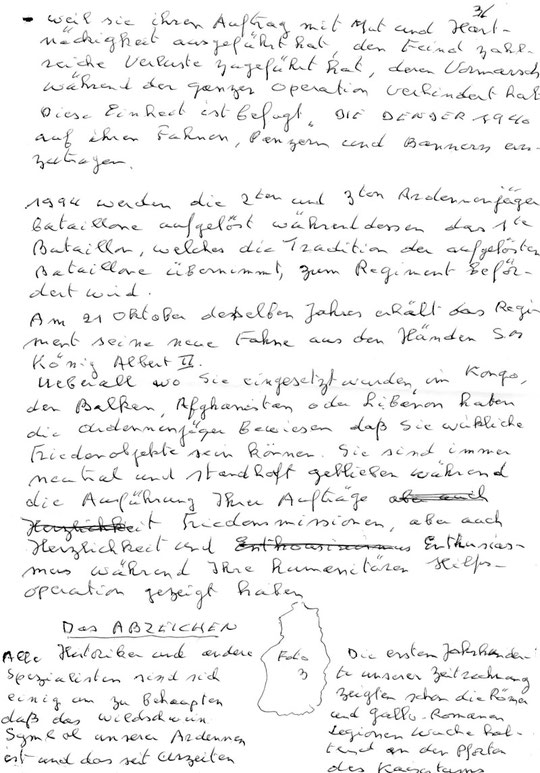 3/
- weil sie ihren Auftrag mit Mut und Hart-
näckigkeit ausgeführt hat, den Feind zahl-
reiche Verluste zugeführt hat, deren Vormarsch
während der ganzer Operation verhindert hat
Diese Einheit ist befugt, DIE DENDER 1940
auf ihren Fahnen, Panzern und Bannern ein-
zutragen.
1994 werden die 2ten und 3ten Ardennenjäger
Bataillone aufgelöst währenddessen das 1te
Bataillon, welches die Tradition der aufgelösten
Bataillone übernimmt, zum Regiment beför-
dert wird.
Am 21 Oktober desselben Jahres erhält das Regi-
ment seine neue Fahne aus den Händen S.M
König Albert II.
Ueberall wo Sie eingesetzt wurden, im Kongo,
den Balken, Afghanistan oder Libanon haben
die Ardennenjäger bewiesen daß Sie wirkliche
Friedenobjekte sein können. Sie sind immer
neutral und standhaft geblieben während
die Ausführung Ihrer Aufträge aber auch
Herzlichkeit Friedensmissionen, aber auch
Herzlichkeit und Enthousiasmus Enthusias-
mus während Ihre humanitären Hilfs-
operation gezeigt haben
Das ABZEICHEN
Alle Historiker und andere
Spezialisten sind sich
einig um zu behaupten
daß das Wildschwein
Symbol unserer Ardennen
ist und das seit Urzeiten
Foto
3
Die ersten Jahrhunder-
te unserer Zeitrechnung
zeigten schon die Römer
und Gallo-Romanen
Legionen Wache hal-
tend an der Pforten
des Kaisertums